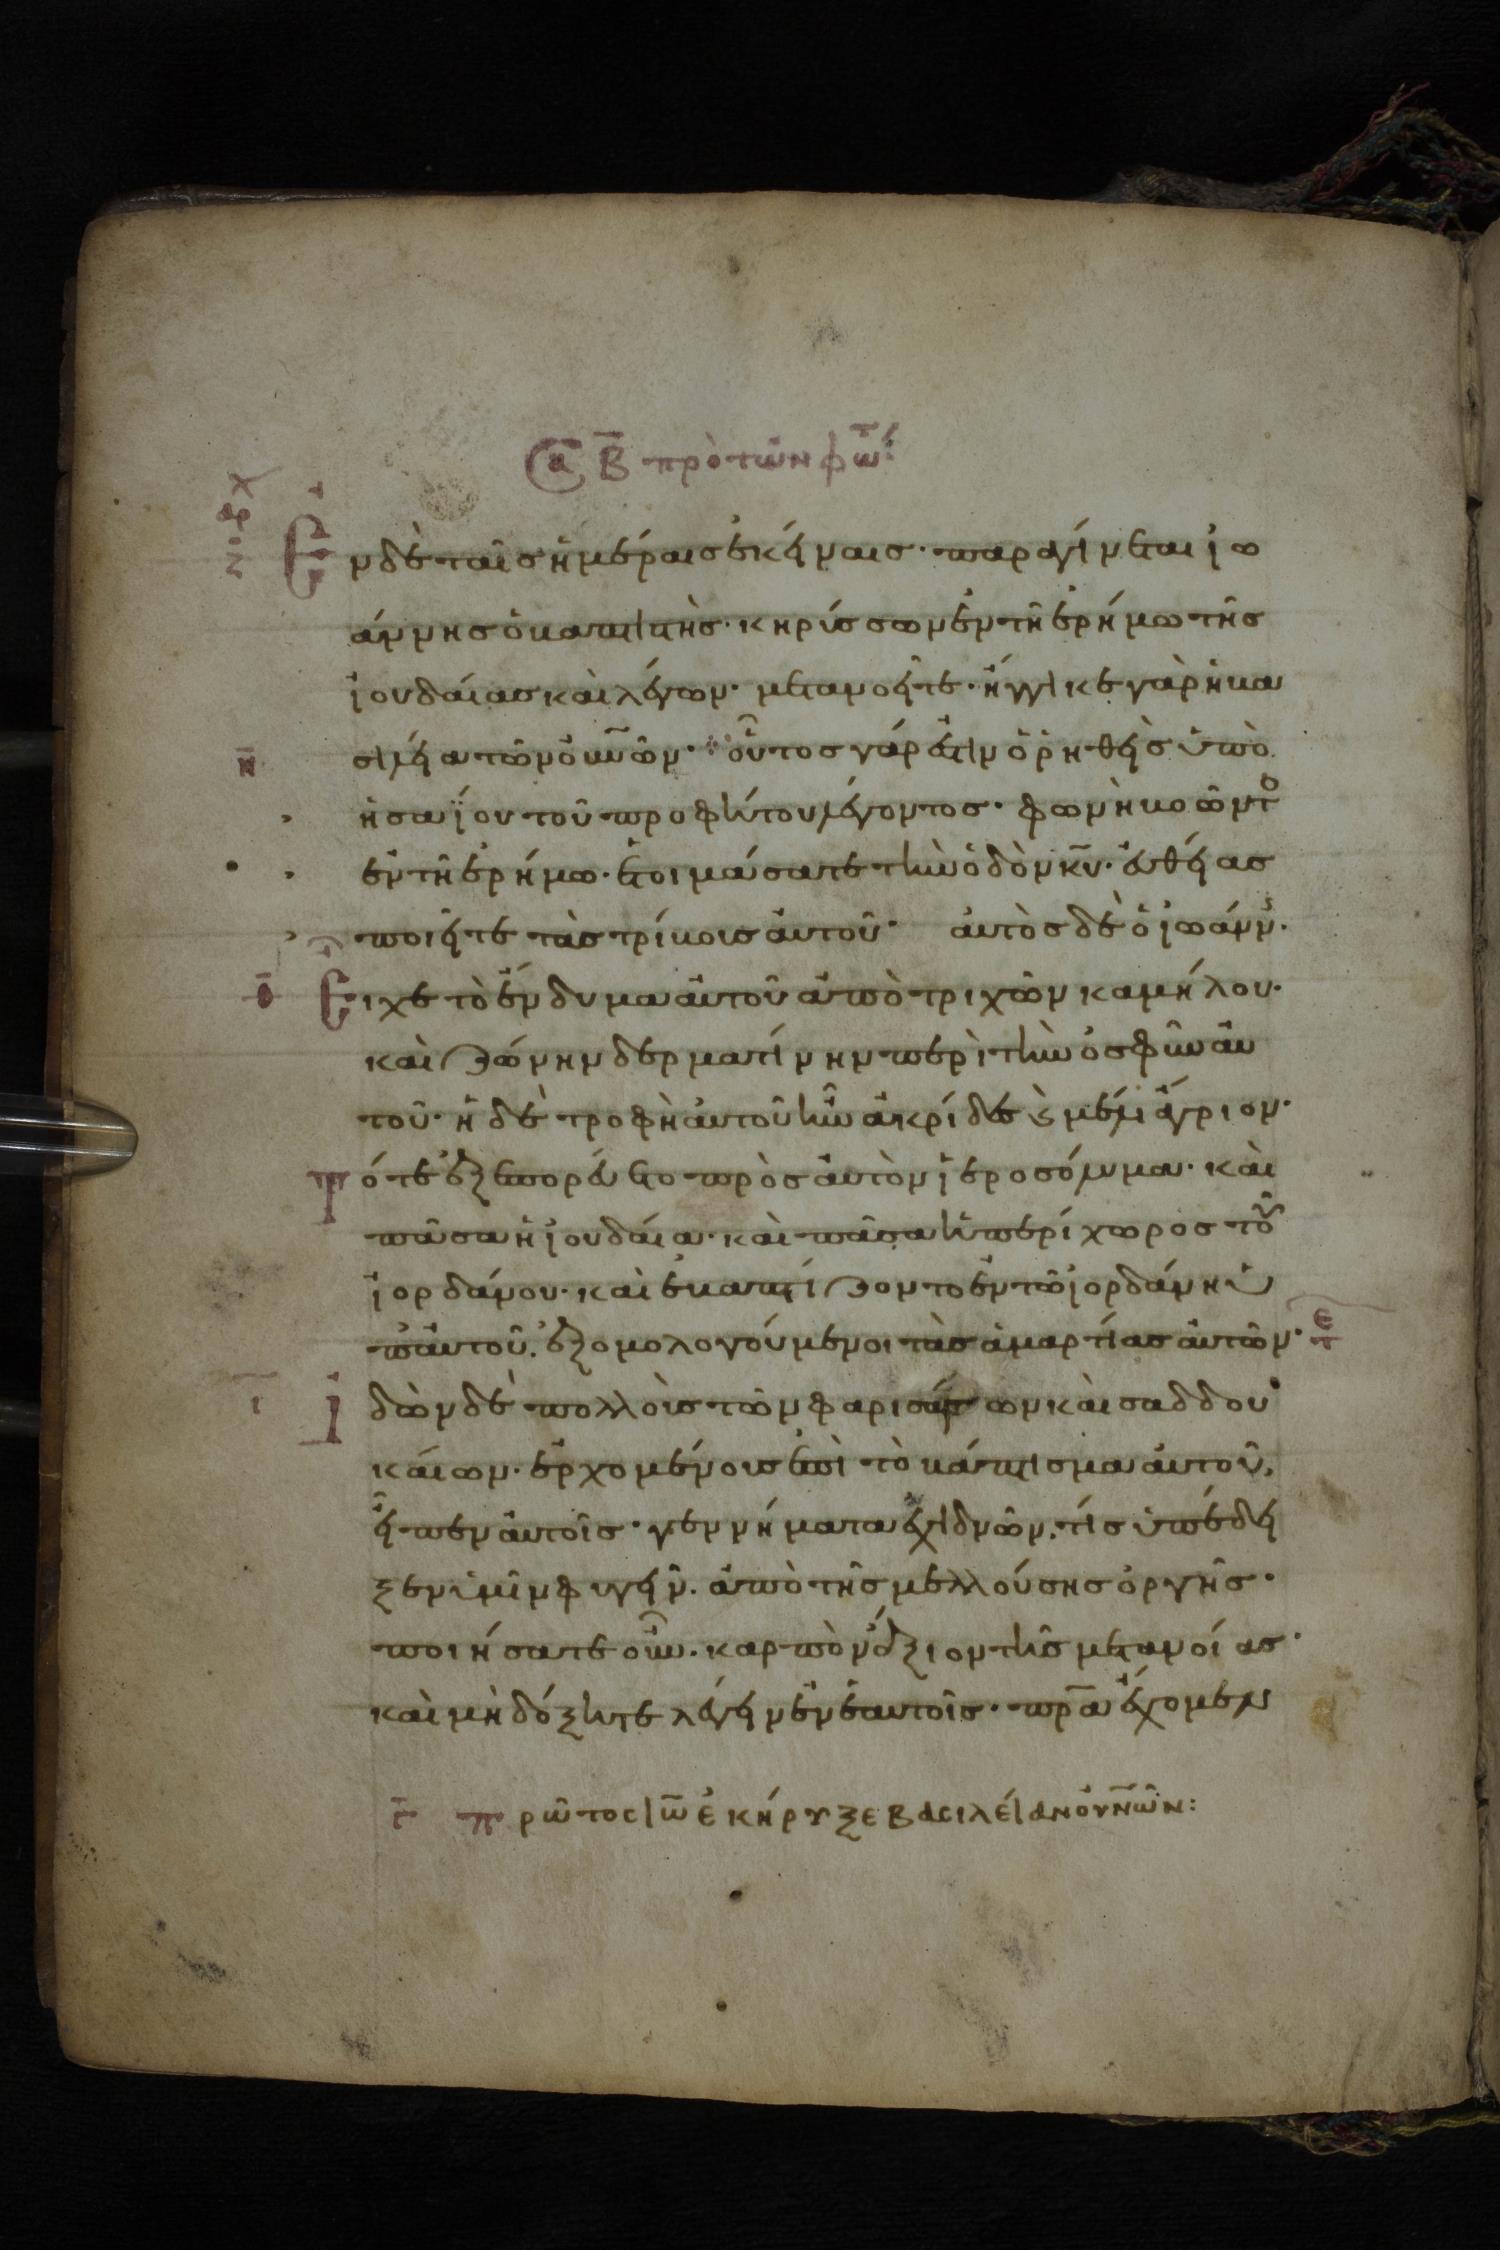 Σα Β πρὸ τῶν φώτ:
Ἐν δὲ ταῖς ἡμέραις ἐκείναις· παραγίνεται ἰω
άννης ὁ βαπτιστὴς· κηρύσσων ἐν τῇ ἐρήμω τῆς
ἰουδαίας καὶ λέγων· μετανοεῖτε· ἤγγικε γὰρ ἡ βα
σιλεία τῶν οὐνῶν· οὗτος γάρ ἐστιν ὁ ῥηθεὶς ὑπὸ
η ἡσαΐου τοῦ προφήτου λέγοντος· φωνὴ βοῶντο
ἐν τῇ ἐρήμω· ἑτοιμάσατε τὴν ὁδὸν κυ· εὐθείας
ποιεῖτε τὰς τρίβους αὐτοῦ· αὐτὸς δὲ ὁ ἰωάνν·
θ Εἶχε τὸ ἔνδυμα αὐτοῦ ἀπὸ τριχῶν καμήλου·
καὶ ζώνην δερματίνην περὶ τὴν ὀσφῦν αὐ
τοῦ· ἡ δὲ τροφὴ αὐτοῦ ἦν ἀκρίδες ϗ μέλι ἄγριον·
Τότε ἐξεπορεύετο πρὸς αὐτὸν ἱεροσόλυμα· καὶ
πᾶσα ἡ ἰουδαία· καὶ πᾶσα ἡ περίχωρος τοῦ
ἰορδάνου· καὶ ἐβαπτίζοντο ἐν τῶ ἰορδάνη ὑ
π' αὐτοῦ. ἐξομολογούμενοι τὰς ἁμαρτίας αὐτῶν·
ι Ἰδὼν δὲ πολλοὺς τῶν φαρισαίων καὶ σαδδου
καίων· ἐρχομένους ἐπὶ τὸ βάπτισμα αὐτοῦ,
εἶπεν αὐτοῖς· γεννήματα ἐχιδνῶν. τίς ὑπέδει
ξεν ὑμῖν φυγεῖν. ἀπὸ τῆς μελλούσης ὀργῆς·
ποιήσατε οὖν. καρπὸν ἄξιον τῆς μετανοίας·
καὶ μὴ δόξητε λέγειν ἐν ἑαυτοῖς· πρα ἔχομεν
γ πρῶτος ἰω ἐκήρυξε βασιλείαν οὐνῶν: